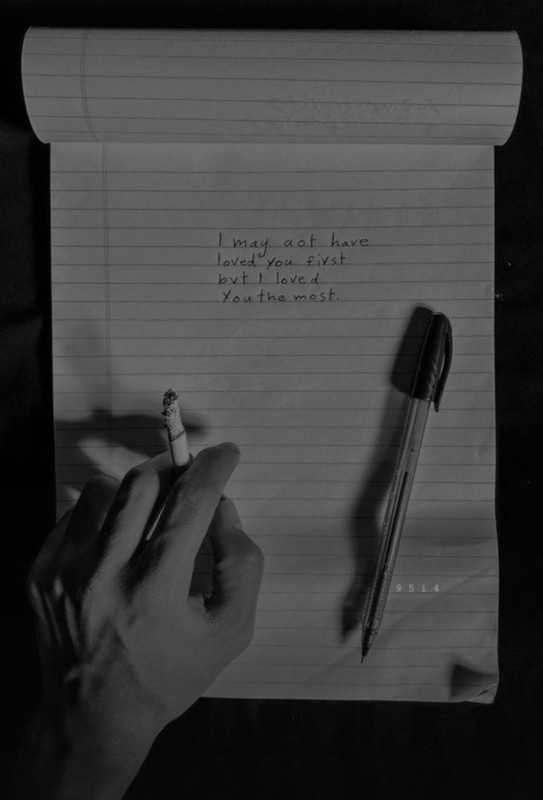 I may not have
loved you first
but I loved
You the most.
9 5 i 4